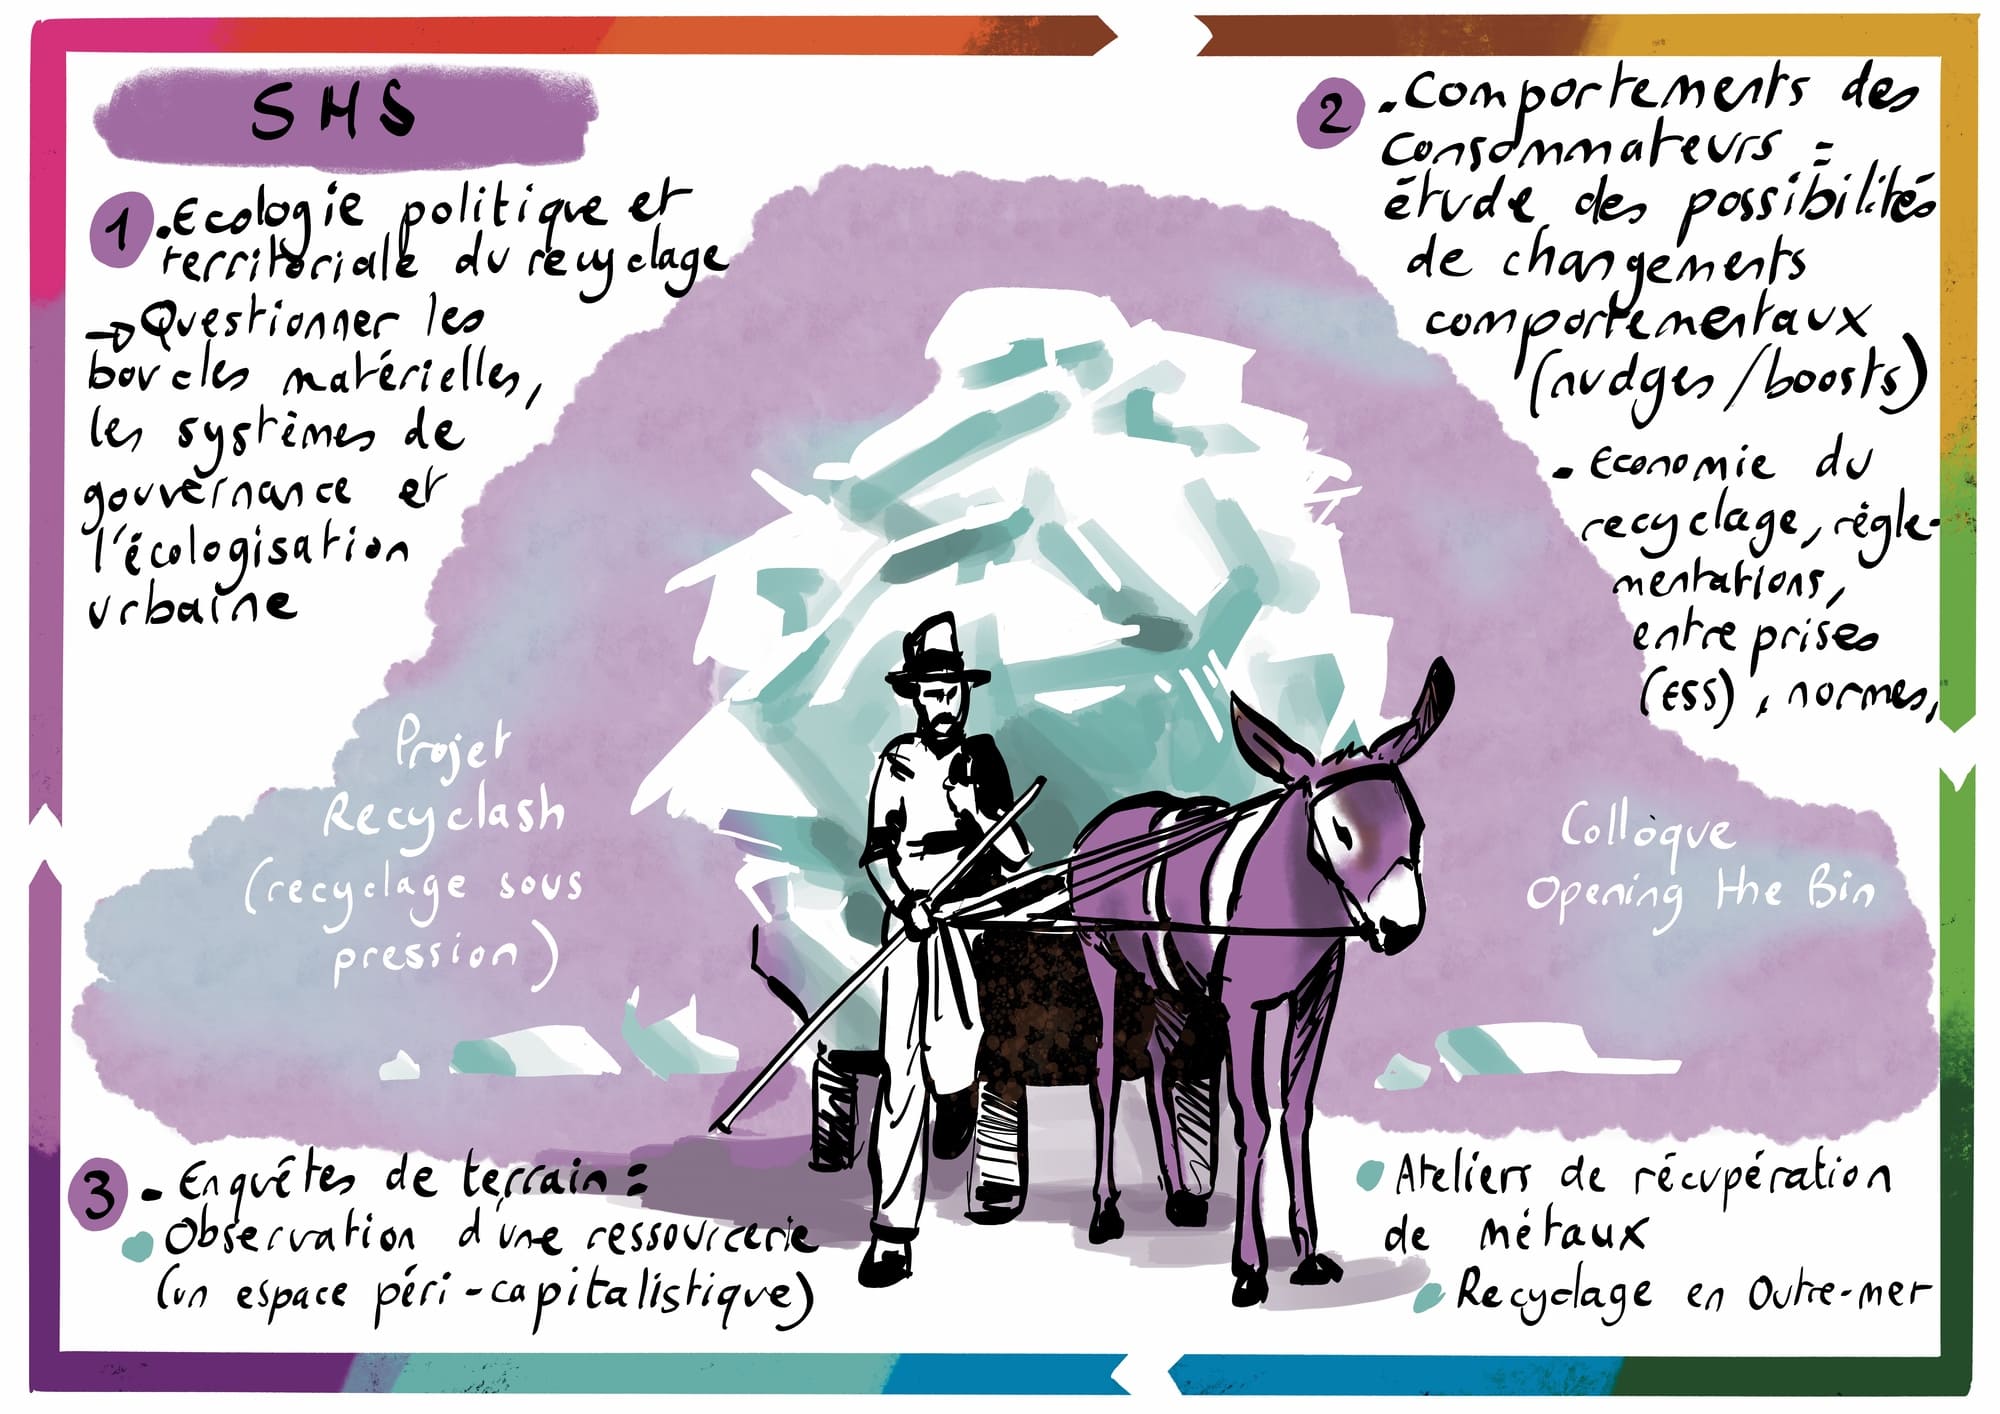 SHS
1 . Ecologie politique et
territoriale du recyclage
→ Questionner les
boucles matérielles,
les systèmes de
gouvernance et
l'écologisation
urbaine
2 . Comportements des
consommateurs =
étude des possibilités
de changements
comportementaux
(nudges / boosts)
- Economie du
recyclage, régle-
mentations,
entreprises
(ESS), normes,
Projet
Recyclash
(recyclage sous
pression)
Colloque
Opening the Bin
3 - Enquêtes de terrain =
Observation d'une ressourcerie
(un espace péri-capitalistique)
Ateliers de récupération
de métaux
Recyclage en Outre-mer